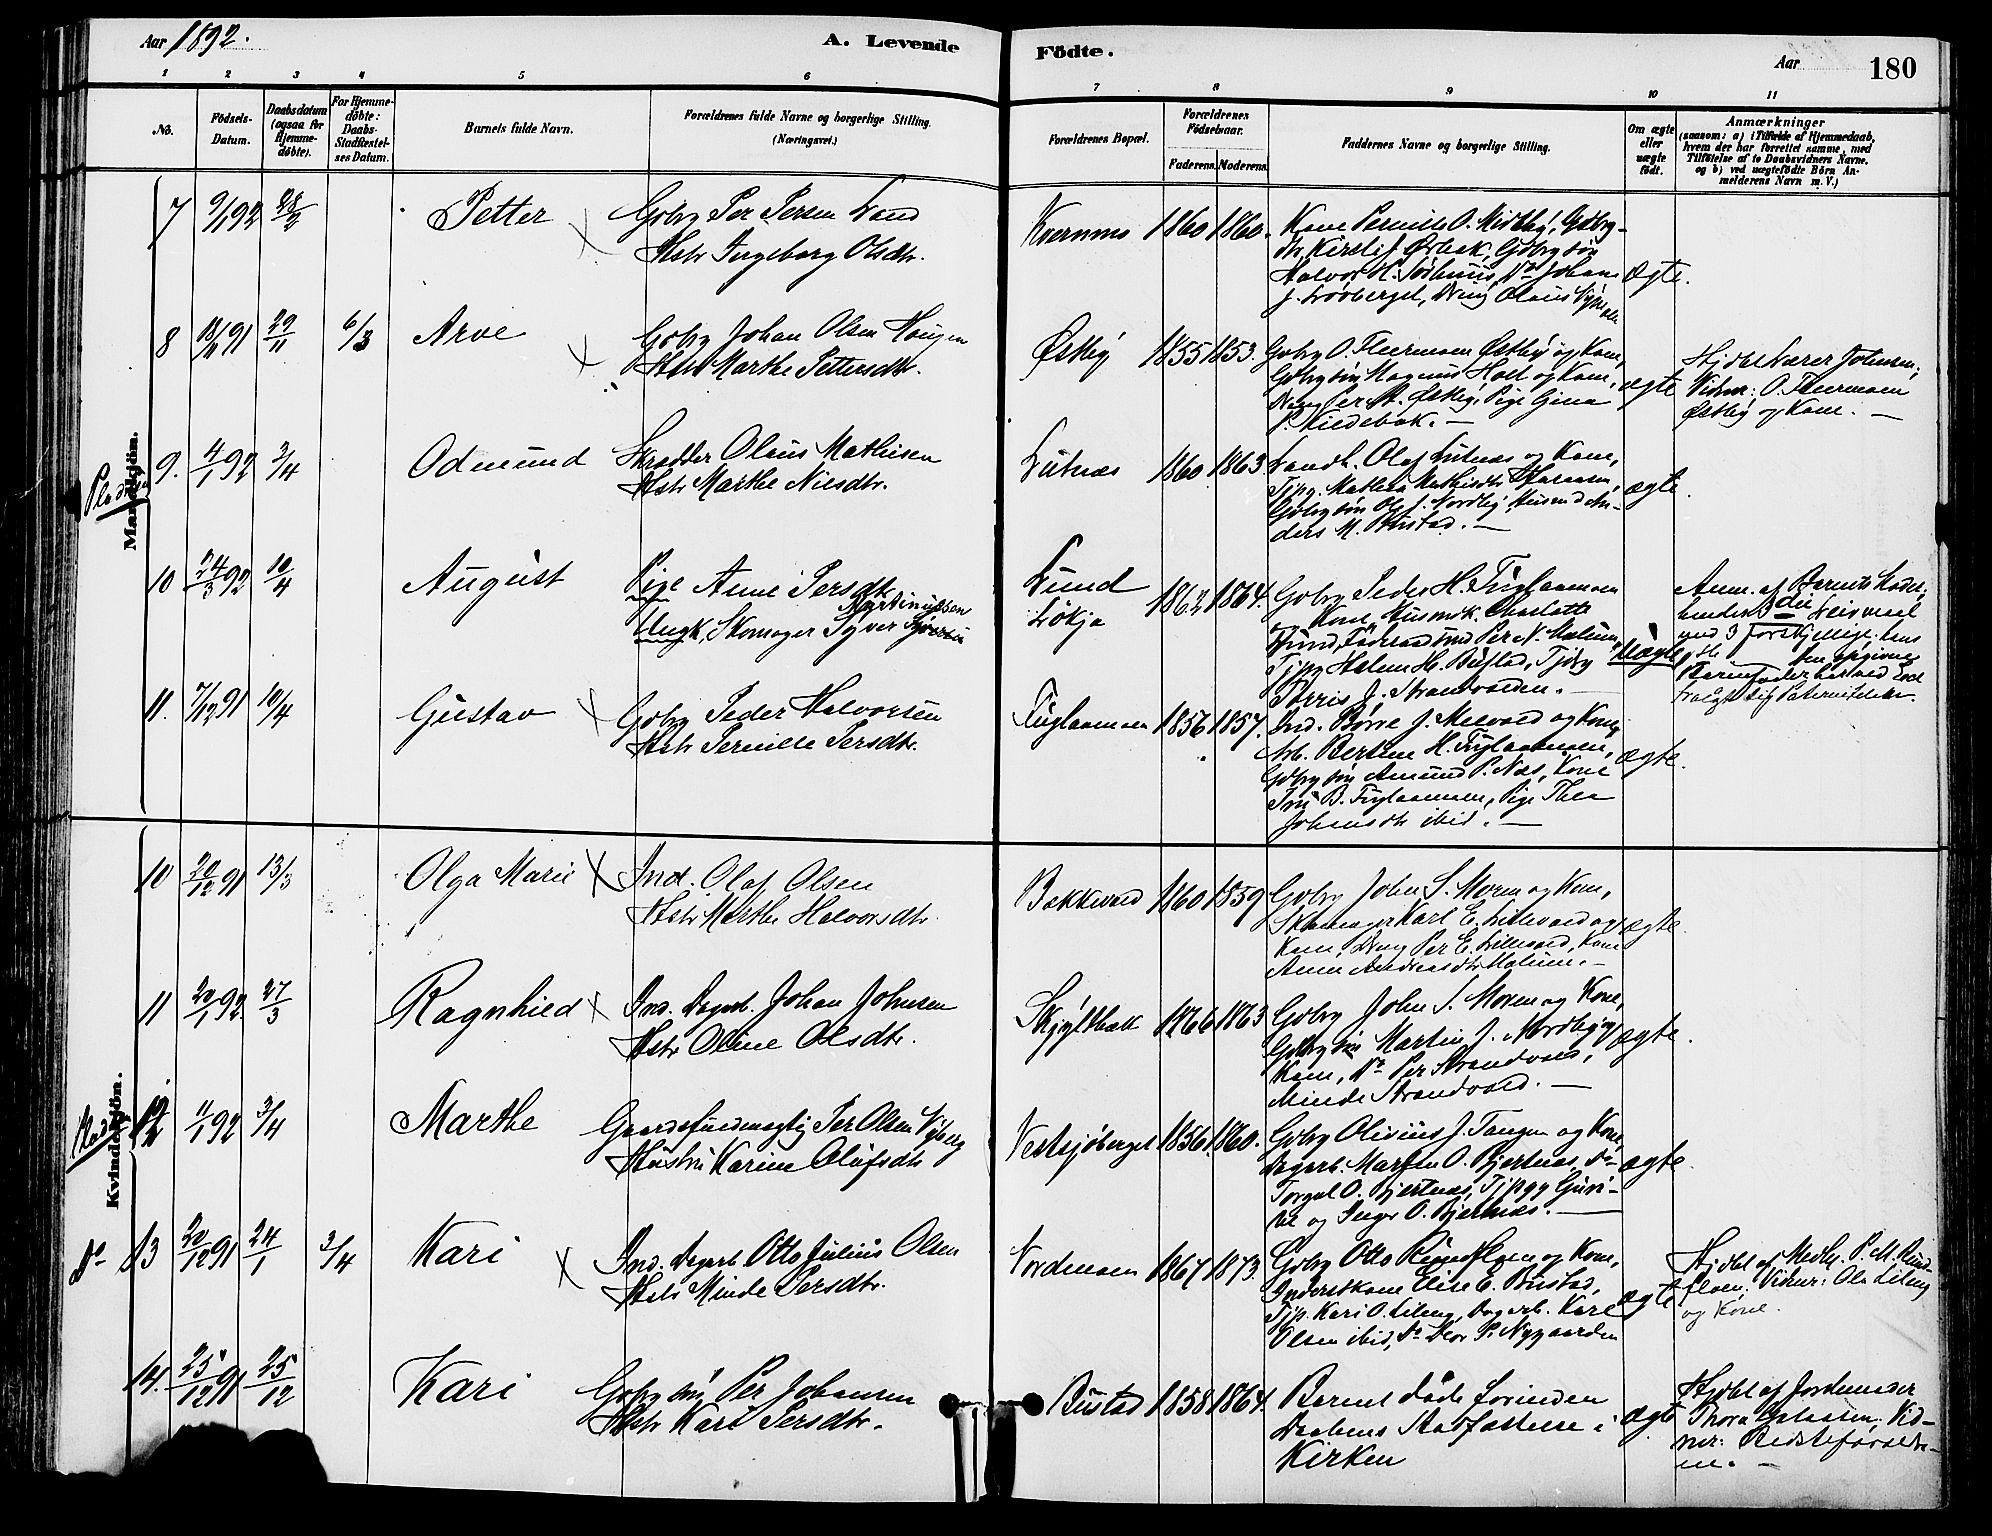 Aar 1892.
A. Levende Födte.
Aar
180
1 2 3 4 5 6 7 8 9 10 11
No.
Födsels-Datum.
Daabsdatum (ogsaa for Hjemme-døbte).
For Hjemme-døbte: Daabs-Stadfæstel-ses Datum.
Barnets fulde Navn.
Forældrenes fulde Navne og borgerlige Stilling. (Næringsvei.)
Forældrenes Bopæl.
Forældrenes Födselsaar.
Faderens. Moderens.
Faddernes Navne og borgerlige Stilling.
Om ægte eller uægte födt.
Anmærkninger
(saasom: a) i Tilfælde af Hjemmedaab,
hvem der har forrettet samme, med
Tilföielse af to Daabsvidners Navne.
og b) ved uægtefödte Börn An-
melderens Navn m. V.)
Mandkjön.
7 9/1 92 28/2 Petter
Gbrg Per Persen Lund
Hstr Ingeborg Olsdtr.
Kvernmo 1860 1860.
Kone Pernille O. Midtby, Gbrg-
dtr Kirsti J. Ørbæk, Gbrgsøn
Halvor H. Do Johan
J. Lövberget, Dreng Olaus
ægte.
8 18/11 91 29/11 6/3 Arve
Gbrg Johan Olsen Haugen
Hstr Marthe Pettersdtr.
Østby 1855 1853.
Gbrg O. Flermoen Østby og Kone,
Gbrgsøn Magnus Holt og Kone,
Dreng Per Østby, Pige Gina
P. Kildebæk.
ægte
Hjdbt Lærer Johnsen,
Vidner: O. Flermoen
Østby og Kone. —
9. 4/1 92 3/4 Odmund
Skradder Olaus Mathisen
Hstr Marthe Nilsdtr.
Lutnæs 1860 1863.
Landh. Olaf Lutnæs og Kone,
Tjpg. Mathea Mathisdtr
Gbrgsøn Ole J. Nordby, Husmd An-
ders M. Bustad. —
ægte.
10 24/3 92 10/4 August
Pige Anne Persdtr
Ungk, Skomager Syver Martinussen
Lund
Lökja 1862 1864.
Gbrg Peder H. Fuglaasmoen
Kone, Husmk. Charlotte
Lund, Per N. Mælum,
Tjpg Halvor H. Bustad, Tjdrg
J. Strandvolden. —
Uægte
Anm. af Barnets
med 3 forskjellige.
opgivne
Barnefader
Paterniteten.
11. 7/12 91 10/4 Gustav
Gbrg Peder Halvorsen
Hstr Pernille Persdtr.
Fuglaasmoen 1856 1857.
Ind. Börre J. Melvold og Kone,
Arb. Bertine H. Fuglaasmoen,
Gbrgsøn Amund P. Næs, Kone
B. Fuglaasmoen, Pige Thea
Johansdtr ibid. —
ægte.
Kvindekjön.
10 20/12 91 13/3 Olga Marie
Ind. Olaf Olsen
Hstr Marthe Halvorsdtr.
Bakkevold 1860 1859
Gbrg John S. Moren og Kone,
Skomager Karl E. Lillevold og
Kone, Dreng Per E. Lillevold, Kone
Anne Andreasdtr Mælum. —
ægte.
11 20/1 92. 27/3 Ragnhild
Ind. Dagarb. Johan Johnsen
Hstr Oline Olsdtr.
Skjyltbæk 1866 1863
Gbrg John S. Moren og Kone,
Gbrgsøn Martin J. Nordby og
Kone, Do Per Strandvold,
Minda Strandvold. —
ægte.
12 11/1 92 3/4 Marthe
Gaardsfuldmægtig Per Olsen Nyberg
Hustru Karine Olufsdtr
Vestsjöberget 1856 1860.
Gbrg Olivius J. Tangen og Kone,
Dagarb. Morten O. Bjertnæs, Do
Torgal O. Bjertnæs, Tjpgr Guri-
ne og Inger O. Bjertnæs. —
ægte.
Do 13 20/12 91 24/1 3/4 Kari
Ind. Dagarb. Otto Julius Olsen
Hstr Minda Persdtr.
Nordmoen 1867 1873.
Gbrg Otto Rundfloen og Kone,
Inderstkone Elise E. Bustad,
Tjp. Kari O. Lileng, Dagarb. Karl
Olsen ibid, Do P. Nygaarden
ægte
Hjdbt af Medhj. P. M. Rund-
floen. Vidner: Ole Lileng
og Kone.
14. 25/12 91 25/12 Kari
Gbrgsøn Per Johansen
Hstr Kari Persdtr.
Bustad 1858 1864.
Barnet døde forinden
Daabens Stadfæstelse i
Kirken
ægte
Hjdbt af Jordemoder
Thora Galaasen. Vid-
ner: Bedsteforældre-
ne. —